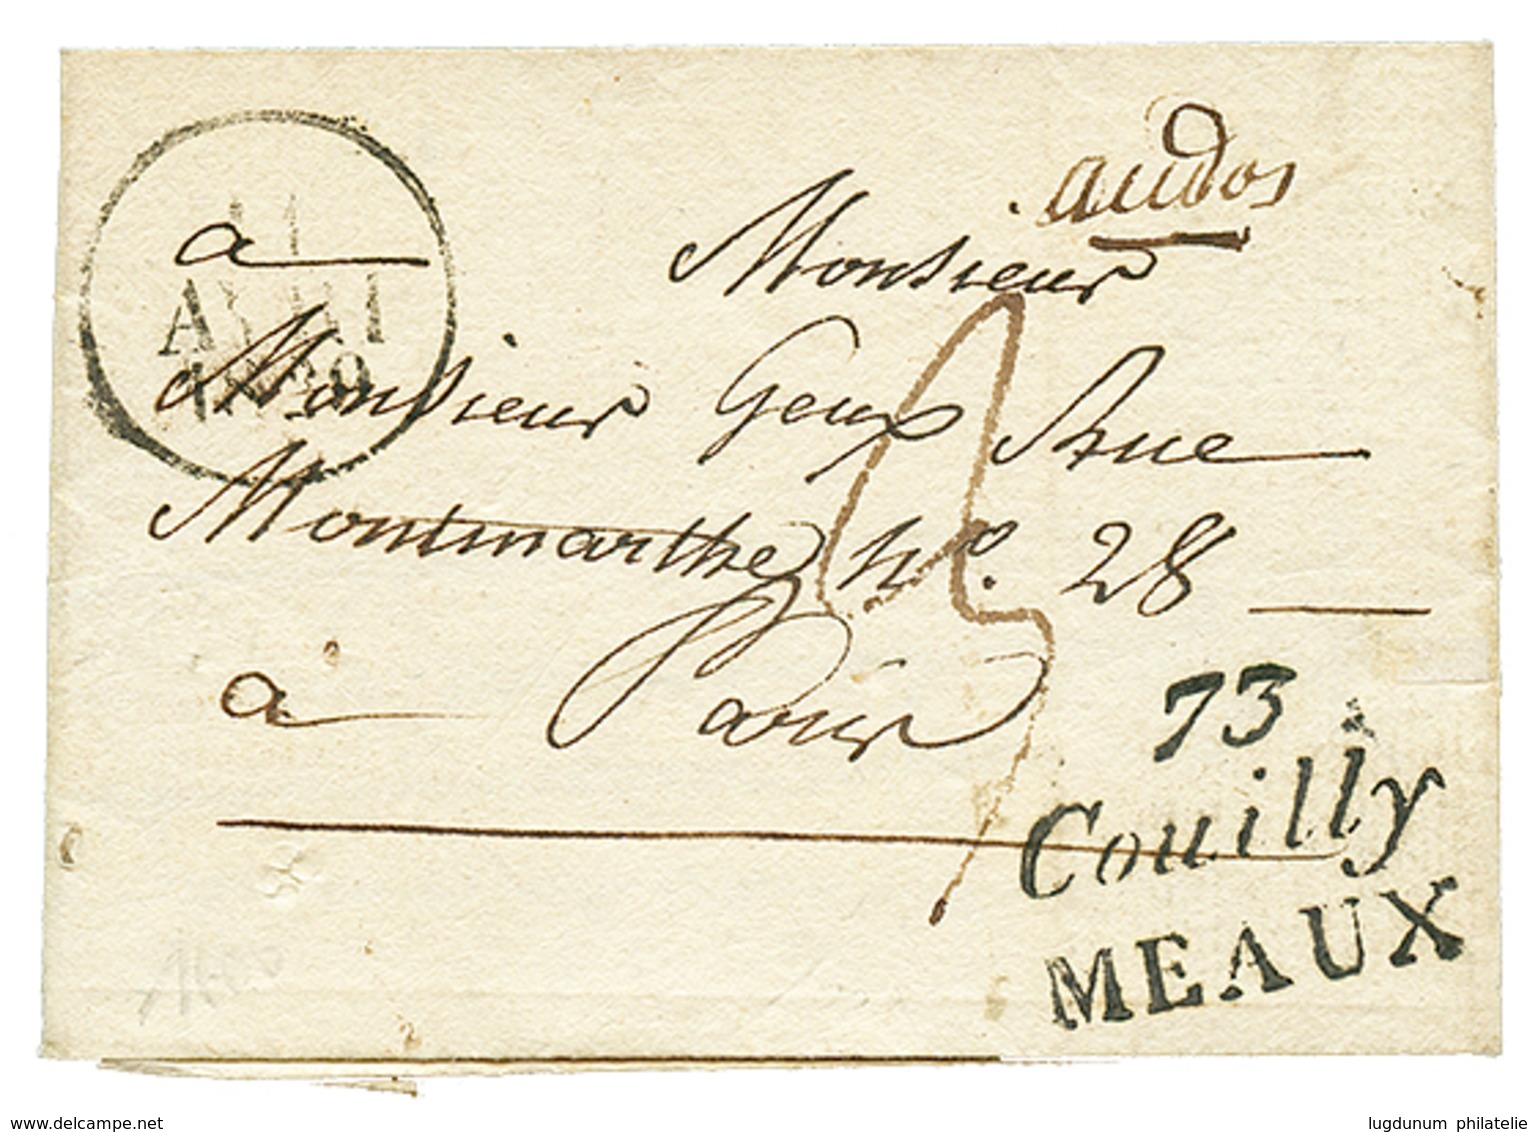 au dos
11
AVRI
à Monsieur
Monsieur Geux Rue
Montmarthe, n°. 28
à Paris
73
Couilly
MEAUX
www.delcampe.net
lugdunum philatelie